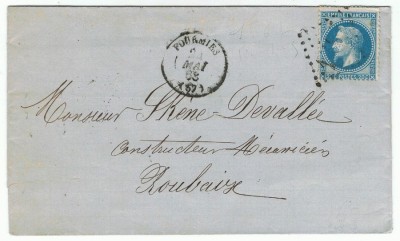 EMPIRE FRANCAIS
FOURMIES
MAI
68
(57)
Monsieur Skene Devallée
Constructeur Mécanicien
Roubaix